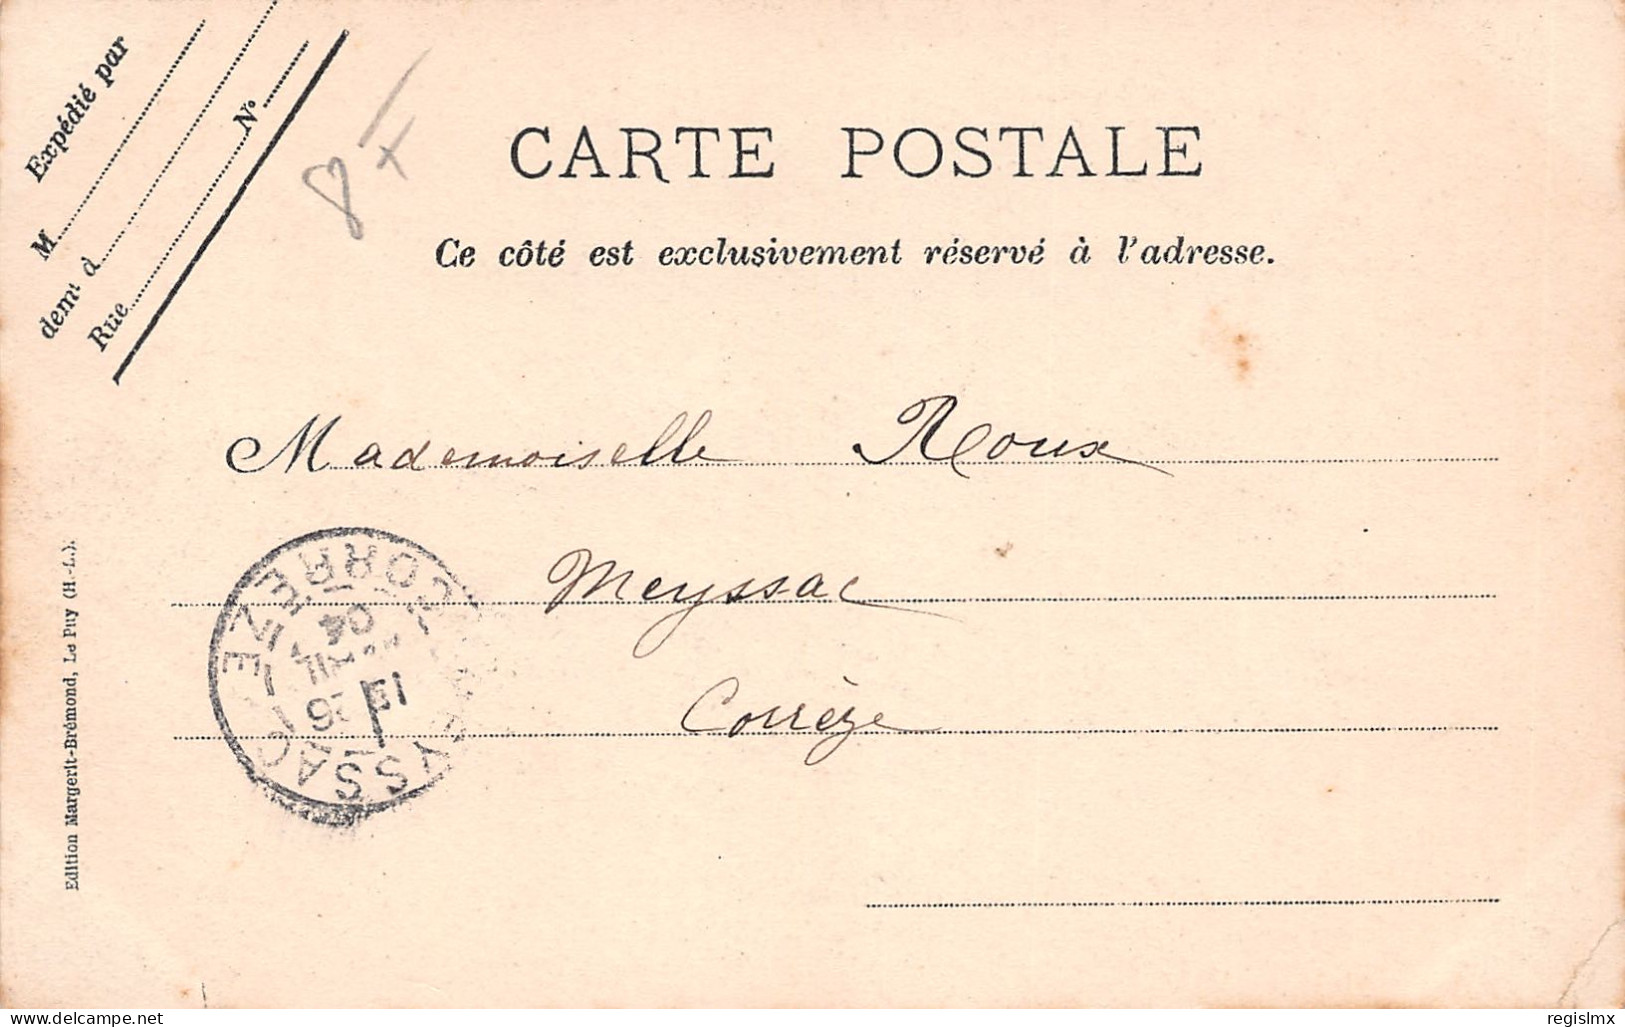 Expédié par
M
demt d
Rue N°
8 F
CARTE POSTALE
Ce côté est exclusivement réservé à l'adresse.
Mademoiselle Roux
Meyssac
Corrèze
YSSAC
CORRÈZE
26
04
Edition Margerit-Brémond, Le Puy (H.-L.).
delcampe.net
regislmx